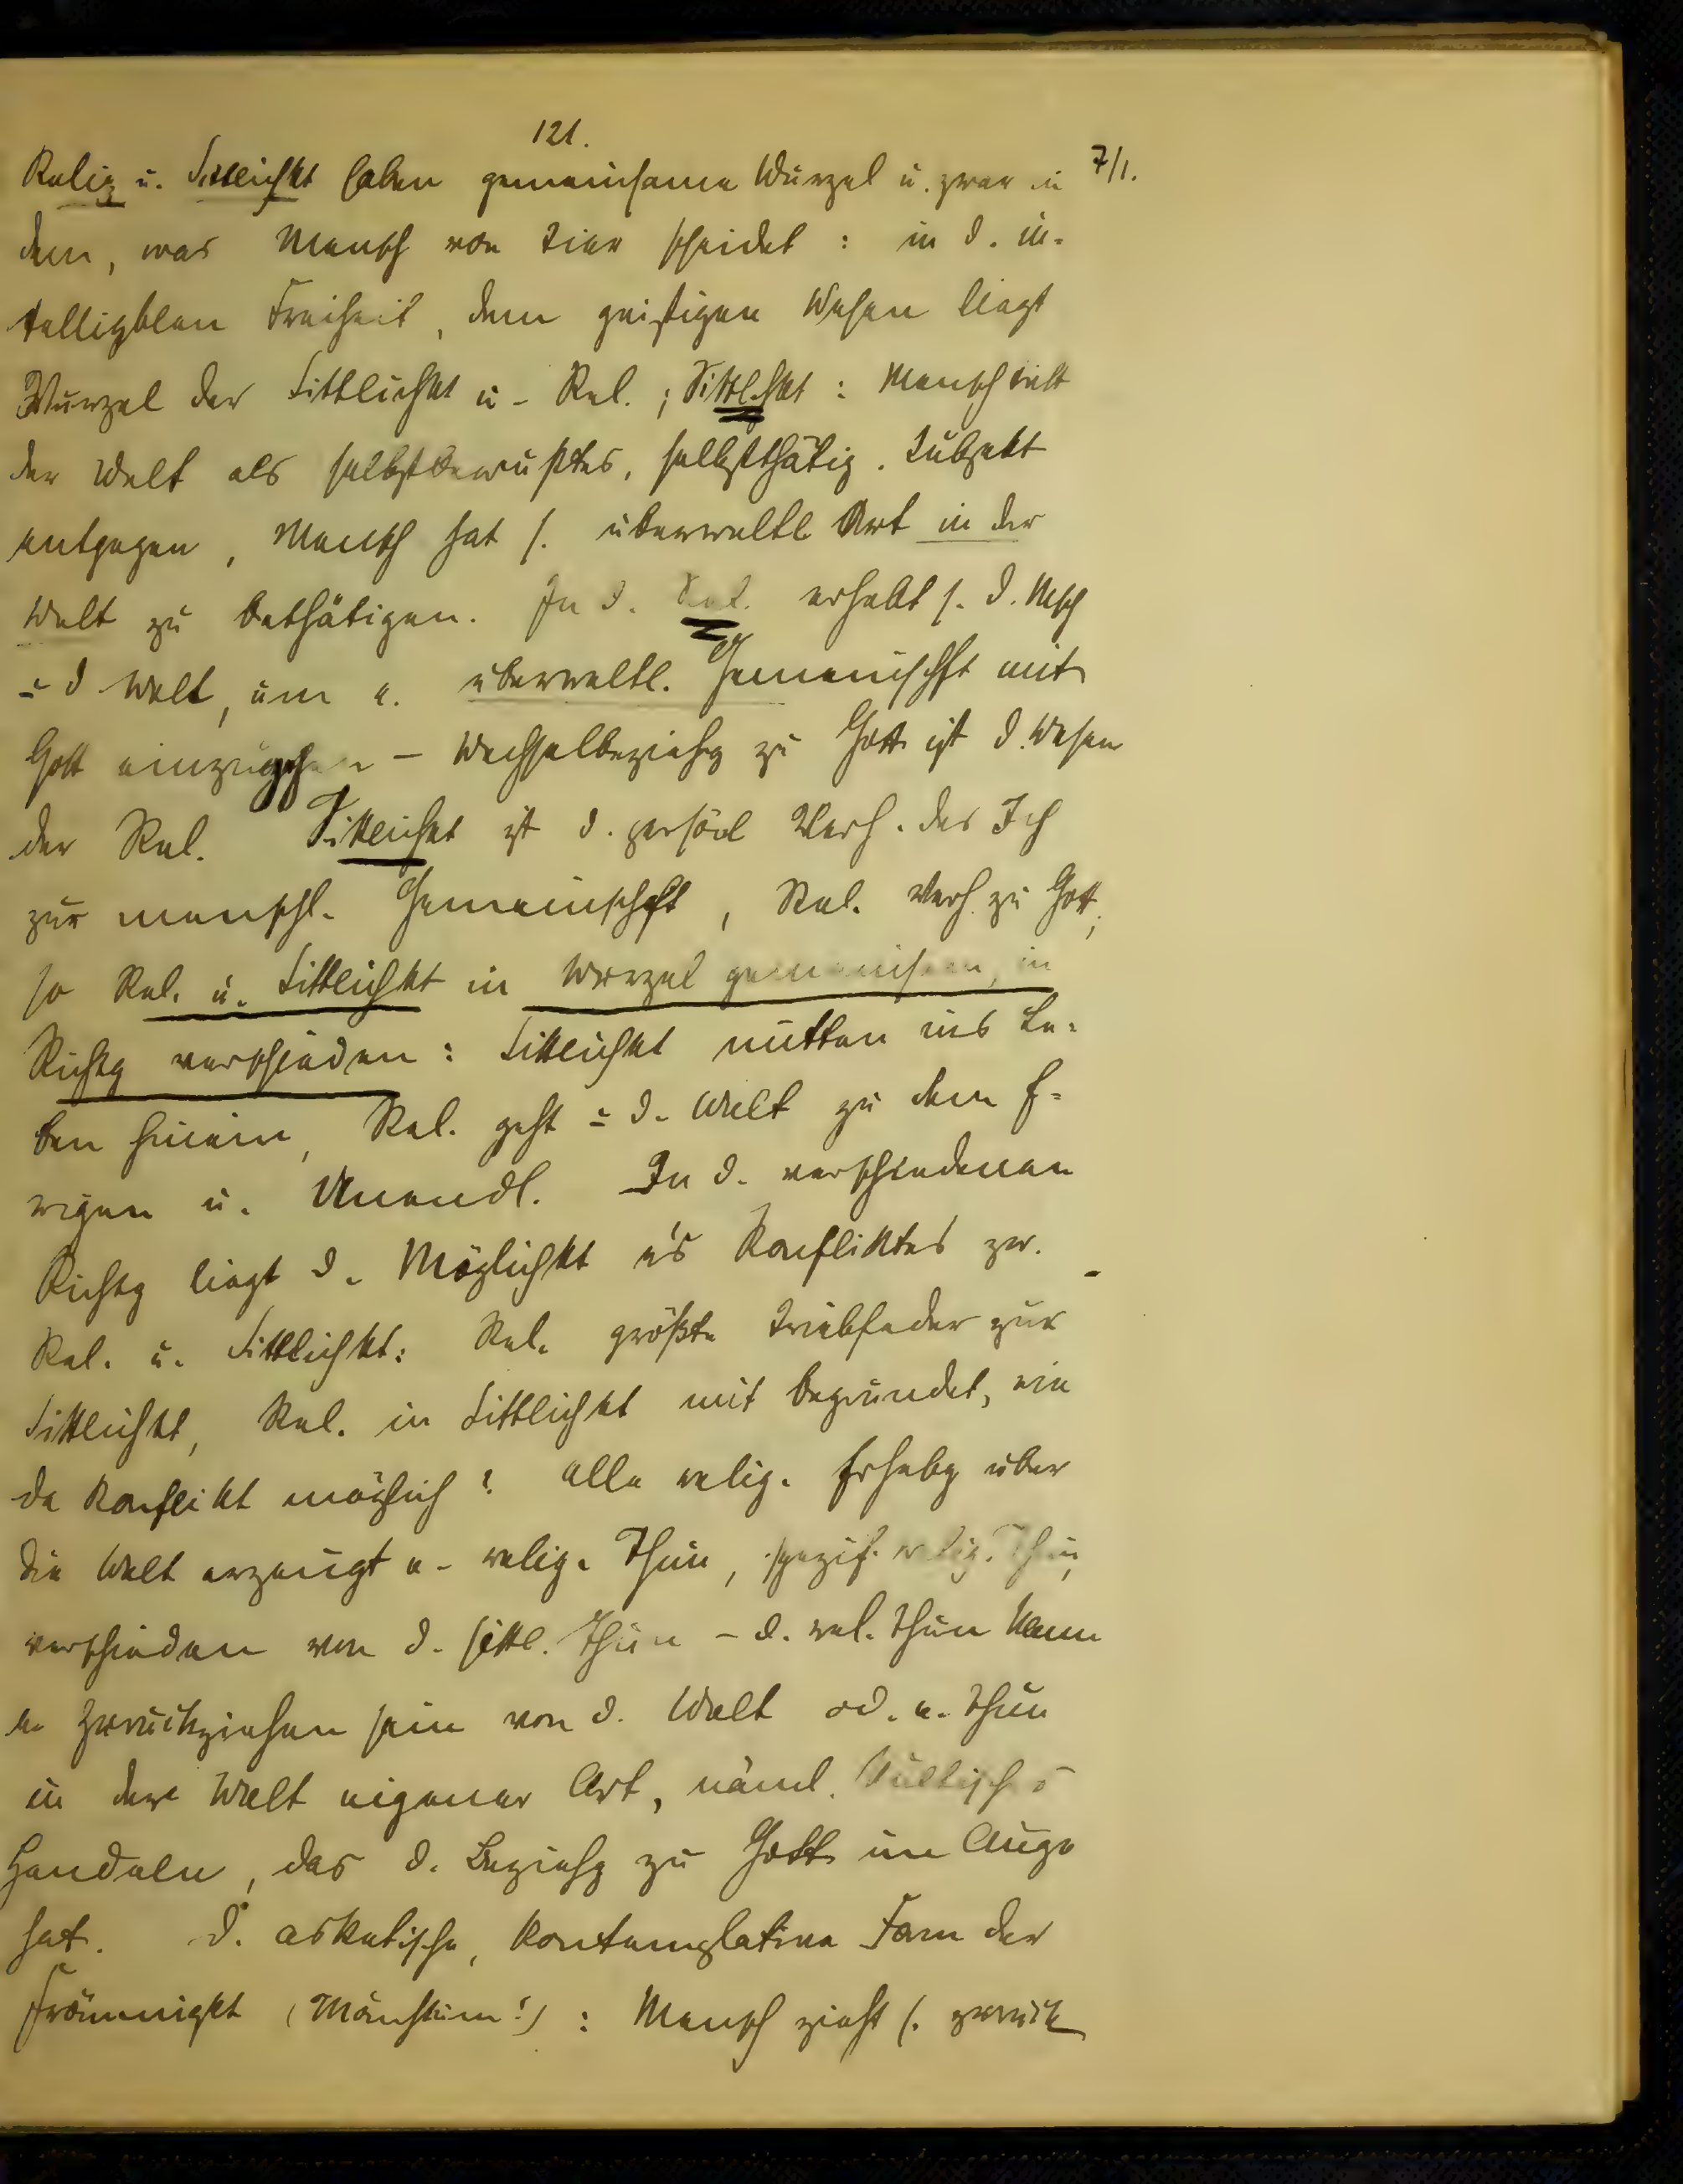 121.
Relig u. Sittlichkt haben gemeinsame Wurzel u. zwar in 7/1.
dem, was Mensch von Tier scheidet : in d. in-
telligblen Freiheit, dem geistigen Wesen liegt
Wurzel der Sittlichkt u. Rel. ; Sittlchkt : Mensch tritt
der Welt als selbstbewußtes, selbstthätig. Subjekt
entgegen, Mensch hat s. überweltl Art in der
Welt zu bethätigen. In d. Rel. erhebt s. d. Msch
ü d Welt, um e. überweltl. Gemeinschft mit
Gott einzugehen – Wechselbeziehg zu Gott ist d. Wesen
der Rel. Sittlichkt ist d. persönl Verh. des Ich
zur menschl. Gemeinschft, Rel. Verh. zu Gott,
so Rel. u. Sittlichkt in Wurzel gemeinsam, in
Richtg verschieden : Sittlichkt mitten ins Le-
ben hinein, Rel. geht ü d. Welt zu dem E-
wigen u. Unendl. In d. verschiedenen
Richtg liegt d. Möglichkt e's Konfliktes zw.
Rel. u. Sittlichkt: Rel. größte Triebfeder zur
Sittlichkt, Rel. in Sittlichkt mit begründet, wie
da Konflikt möglich? Alle relig. Erhebg über
die Welt erzeugt e. relig. Thun, spezif. relig. Thun,
verschieden von d. sittl. Thun – d. rel. Thun kann
e. Zurückziehen sein von d. Welt od. e. Thun
in der Welt eigener Art, näml. Kultisches
Handeln, das d. Beziehg zu Gott im Auge
hat. D. asketische, kontemplative Form der
Frömmigkt (Mönchtum!) : Mensch zieht s. zurück